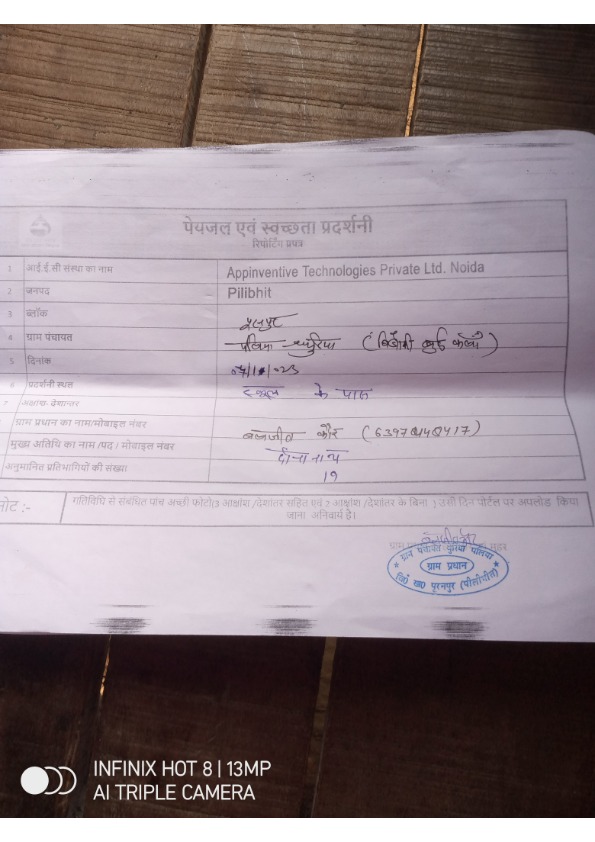 पेयजल एवं स्वच्छता प्रदर्शनी
रिपोर्टिंग प्रपत्र
1 आई.ई.सी संस्था का नाम Appinventive Technologies Private Ltd. Noida
2 जनपद Pilibhit
3 ब्लॉक
4 ग्राम पंचायत
5 दिनांक
6 प्रदर्शनी स्थल स्कूल के पास
7 अक्षांश- देशान्तर
ग्राम प्रधान का नाम/मोबाइल नंबर बलजीत कौर
मुख्य अतिथि का नाम /पद / मोबाइल नंबर दीनानाथ
अनुमानित प्रतिभागियों की संख्या 19
नोट :- गतिविधि से संबंधित पांच अच्छी फोटो(3 आक्षांश /देशांतर सहित एवं 2 आक्षांश /देशांतर के बिना ) उसी दिन पोर्टल पर अपलोड किया
जाना अनिवार्य है।
ग्राम पंचायत
ग्राम प्रधान
पूरनपुर (पीलीभीत)
INFINIX HOT 8 | 13MP
AI TRIPLE CAMERA